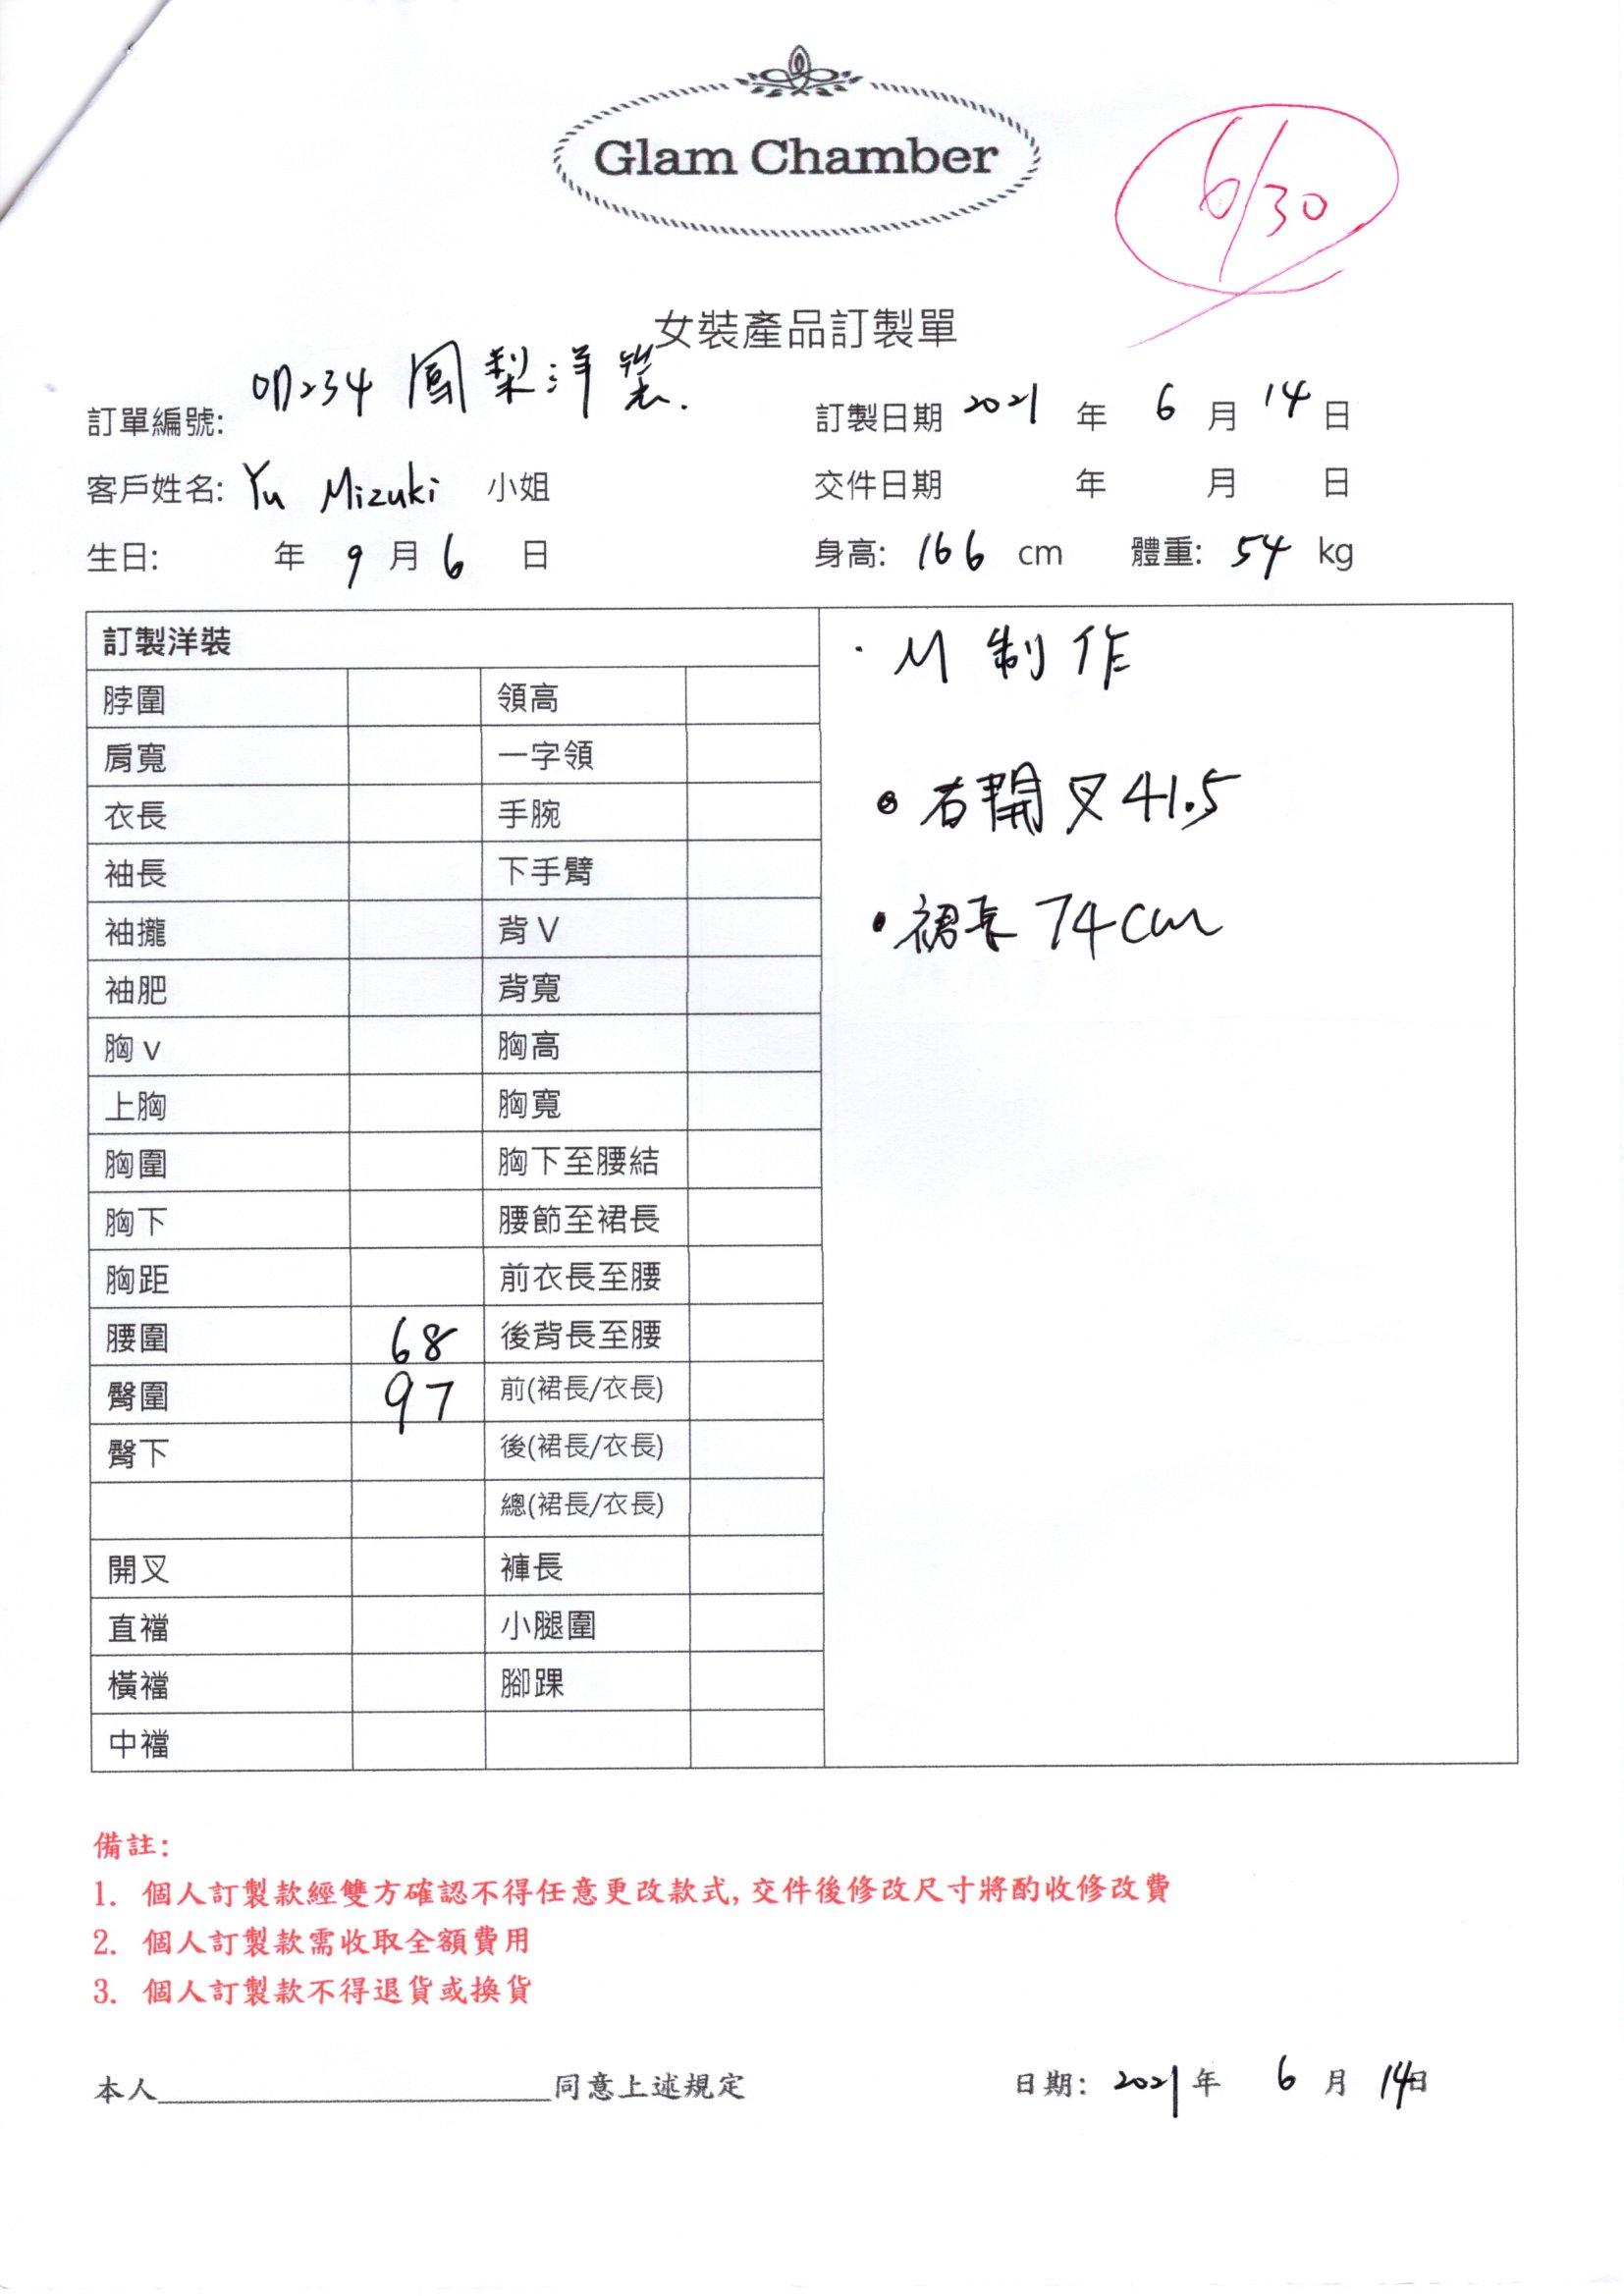 Glam Chamber
6/30
女裝產品訂製單
訂單編號: 071234 鳳梨洋裝.
訂製日期 2021 年 6 月 14 日
客戶姓名: Yu Mizuki 小姐
交件日期 年 月 日
生日: 年 9 月 6 日
身高: 166 cm 體重: 54 kg
訂製洋裝
脖圍 領高
肩寬 一字領
衣長 手腕
袖長 下手臂
袖攏 背V
袖肥 背寬
胸v 胸高
上胸 胸寬
胸圍 胸下至腰結
胸下 腰節至裙長
胸距 前衣長至腰
腰圍 68 後背長至腰
臀圍 97 前(裙長/衣長)
臀下 後(裙長/衣長)
總(裙長/衣長)
開叉 褲長
直襠 小腿圍
橫襠 腳踝
中襠
· M 制作
• 右開叉 41.5
• 裙長 74cm
備註:
1. 個人訂製款經雙方確認不得任意更改款式,交件後修改尺寸將酌收修改費
2. 個人訂製款需收取全額費用
3. 個人訂製款不得退貨或換貨
本人____________________同意上述規定
日期: 2021 年 6 月 14 日